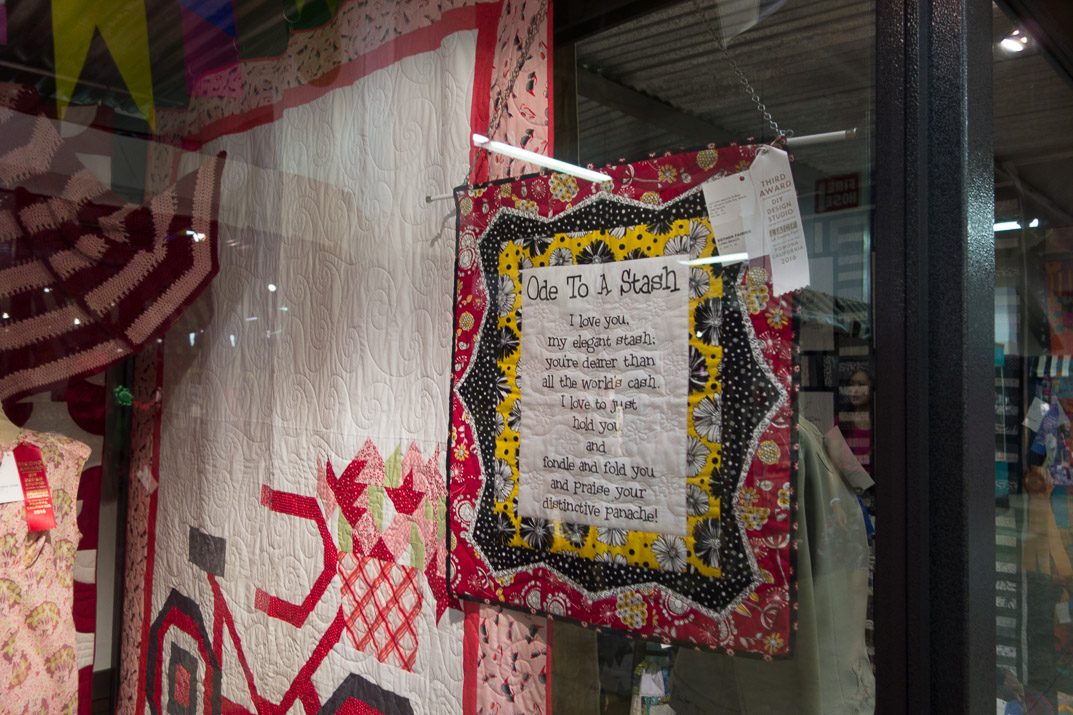 Ode To A Stash
I love you,
my elegant stash;
you're dearer than
all the world's cash.
I love to just
hold you
and
fondle and fold you
and praise your
distinctive panache!
THIRD
AWARD
DIY
DESIGN
STUDIO
POMONA
CALIFORNIA
2018
FIRE
HOSE